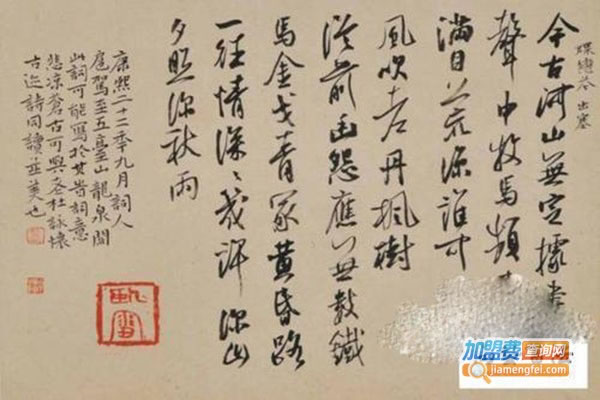 蝶戀花 出塞
今古河山無定據畫
聲中牧馬頻
滿目荒涼誰可
風吹老丹楓樹
從前幽怨應無數鐵
馬金戈青冢黃昏路
一往情深〻幾許深山
夕照深秋雨
康熙二十二年九月詞人
扈駕至五臺山龍泉關
此詞可能寫於其時詞意
悲涼蒼古可與老杜詠懷
古迹詩同讀並美也
加盟费查询网
jiamengfei.com